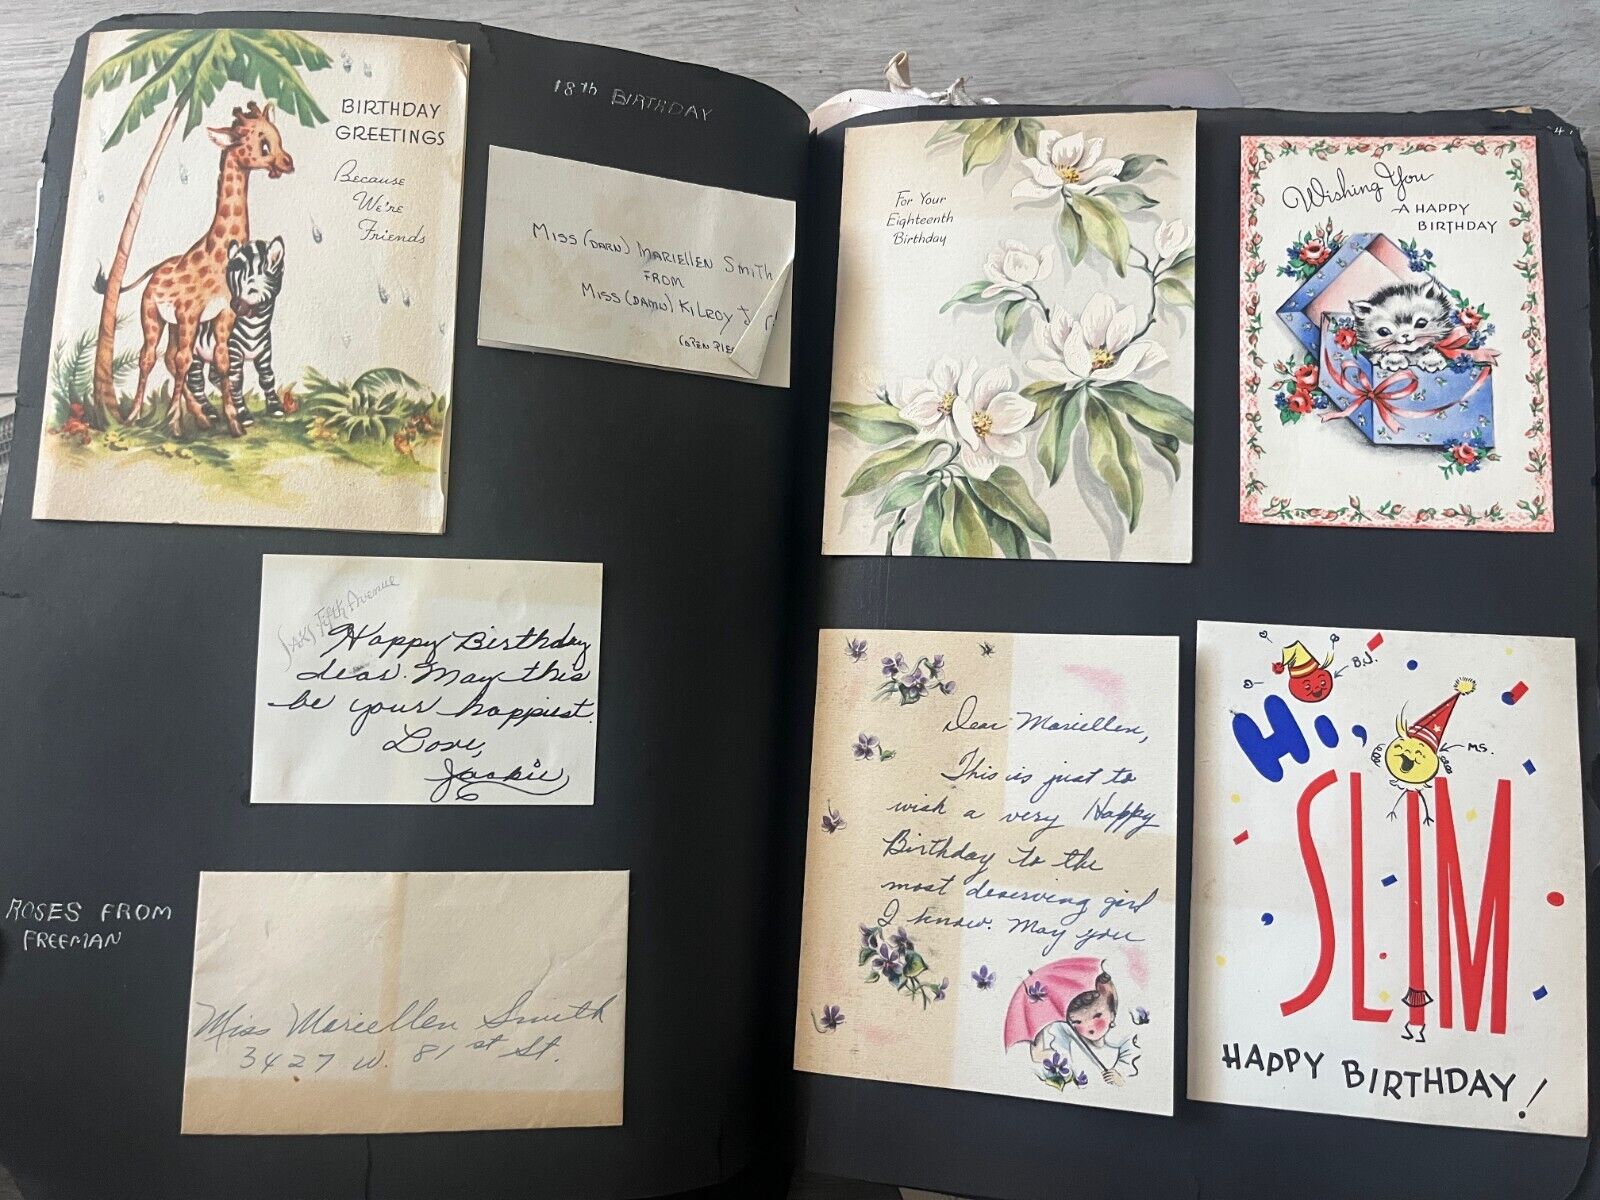 18th BIRTHDAY
BIRTHDAY
GREETINGS
Because
We're
Friends
MISS (DARN) MARIELLEN SMITH
FROM
MISS (DAMN) KILROY
(OPEN
SAKS Fifth Avenue
Happy Birthday
dear. May this
be your happiest.
Love,
Jackie
ROSES FROM
FREEMAN
Miss Mariellen Smith
3427 W. 81st St.
For Your
Eighteenth
Birthday
Wishing You
A HAPPY
BIRTHDAY
Dear Mariellen,
This is just to
wish a very Happy
Birthday to the
most deserving girl
I know. May you
B.J.
Hi,
MS.
SLIM
HAPPY BIRTHDAY!